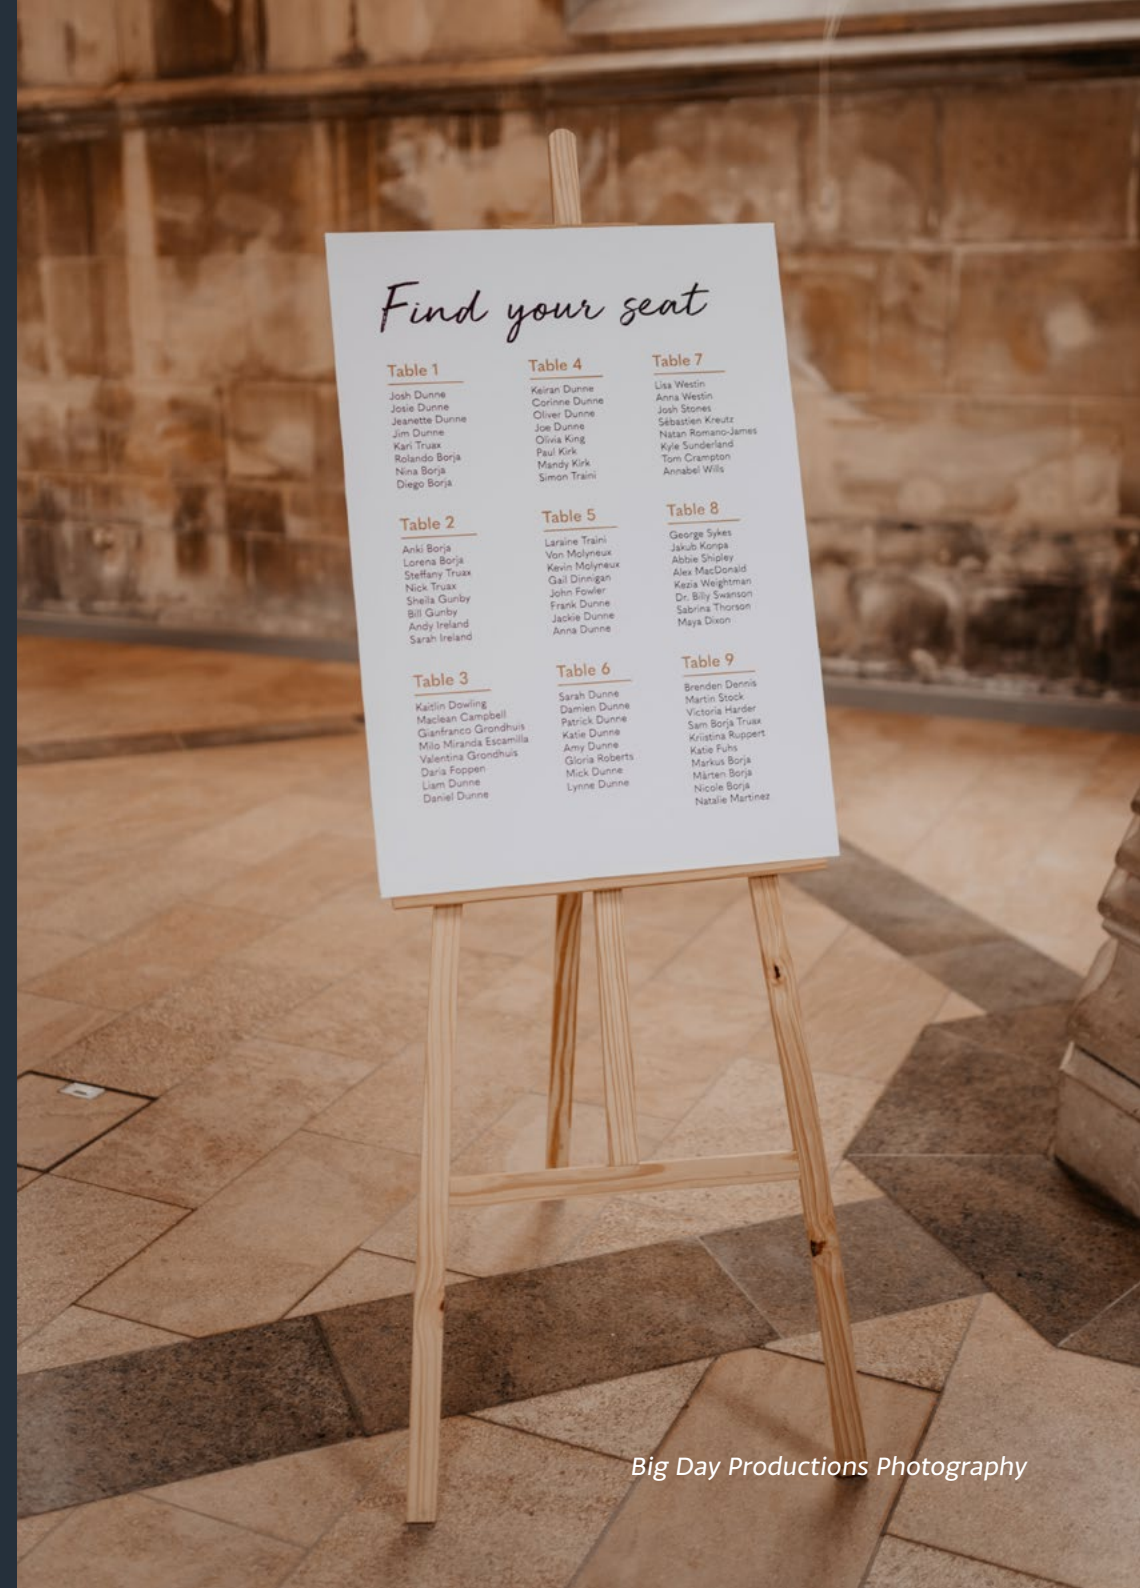 Find your seat
Table 1
Josh Dunne
Josie Dunne
Jeanette Dunne
Jim Dunne
Kari Truax
Rolando Borja
Nina Borja
Diego Borja
Table 2
Anki Borja
Lorena Borja
Steffany Truax
Nick Truax
Sheila Gunby
Bill Gunby
Andy Ireland
Sarah Ireland
Table 3
Kaitlin Dowling
Maclean Campbell
Gianfranco Grondhuis
Milo Miranda Escamilla
Valentina Grondhuis
Daria Foppen
Liam Dunne
Daniel Dunne
Table 4
Keiran Dunne
Corinne Dunne
Oliver Dunne
Joe Dunne
Olivia King
Paul Kirk
Mandy Kirk
Simon Traini
Table 5
Laraine Traini
Von Molyneux
Kevin Molyneux
Gail Dinnigan
John Fowler
Frank Dunne
Jackie Dunne
Anna Dunne
Table 6
Sarah Dunne
Damien Dunne
Patrick Dunne
Katie Dunne
Amy Dunne
Gloria Roberts
Mick Dunne
Lynne Dunne
Table 7
Lisa Westin
Anna Westin
Josh Stones
Sébastien Kreutz
Natan Romano-James
Kyle Sunderland
Tom Crampton
Annabel Wills
Table 8
George Sykes
Jakub Konpa
Abbie Shipley
Alex MacDonald
Kezia Weightman
Dr. Billy Swanson
Sabrina Thorson
Maya Dixon
Table 9
Brenden Dennis
Martin Stock
Victoria Harder
Sam Borja Truax
Kriistina Ruppert
Katie Fuhs
Markus Borja
Mårten Borja
Nicole Borja
Natalie Martinez
Big Day Productions Photography